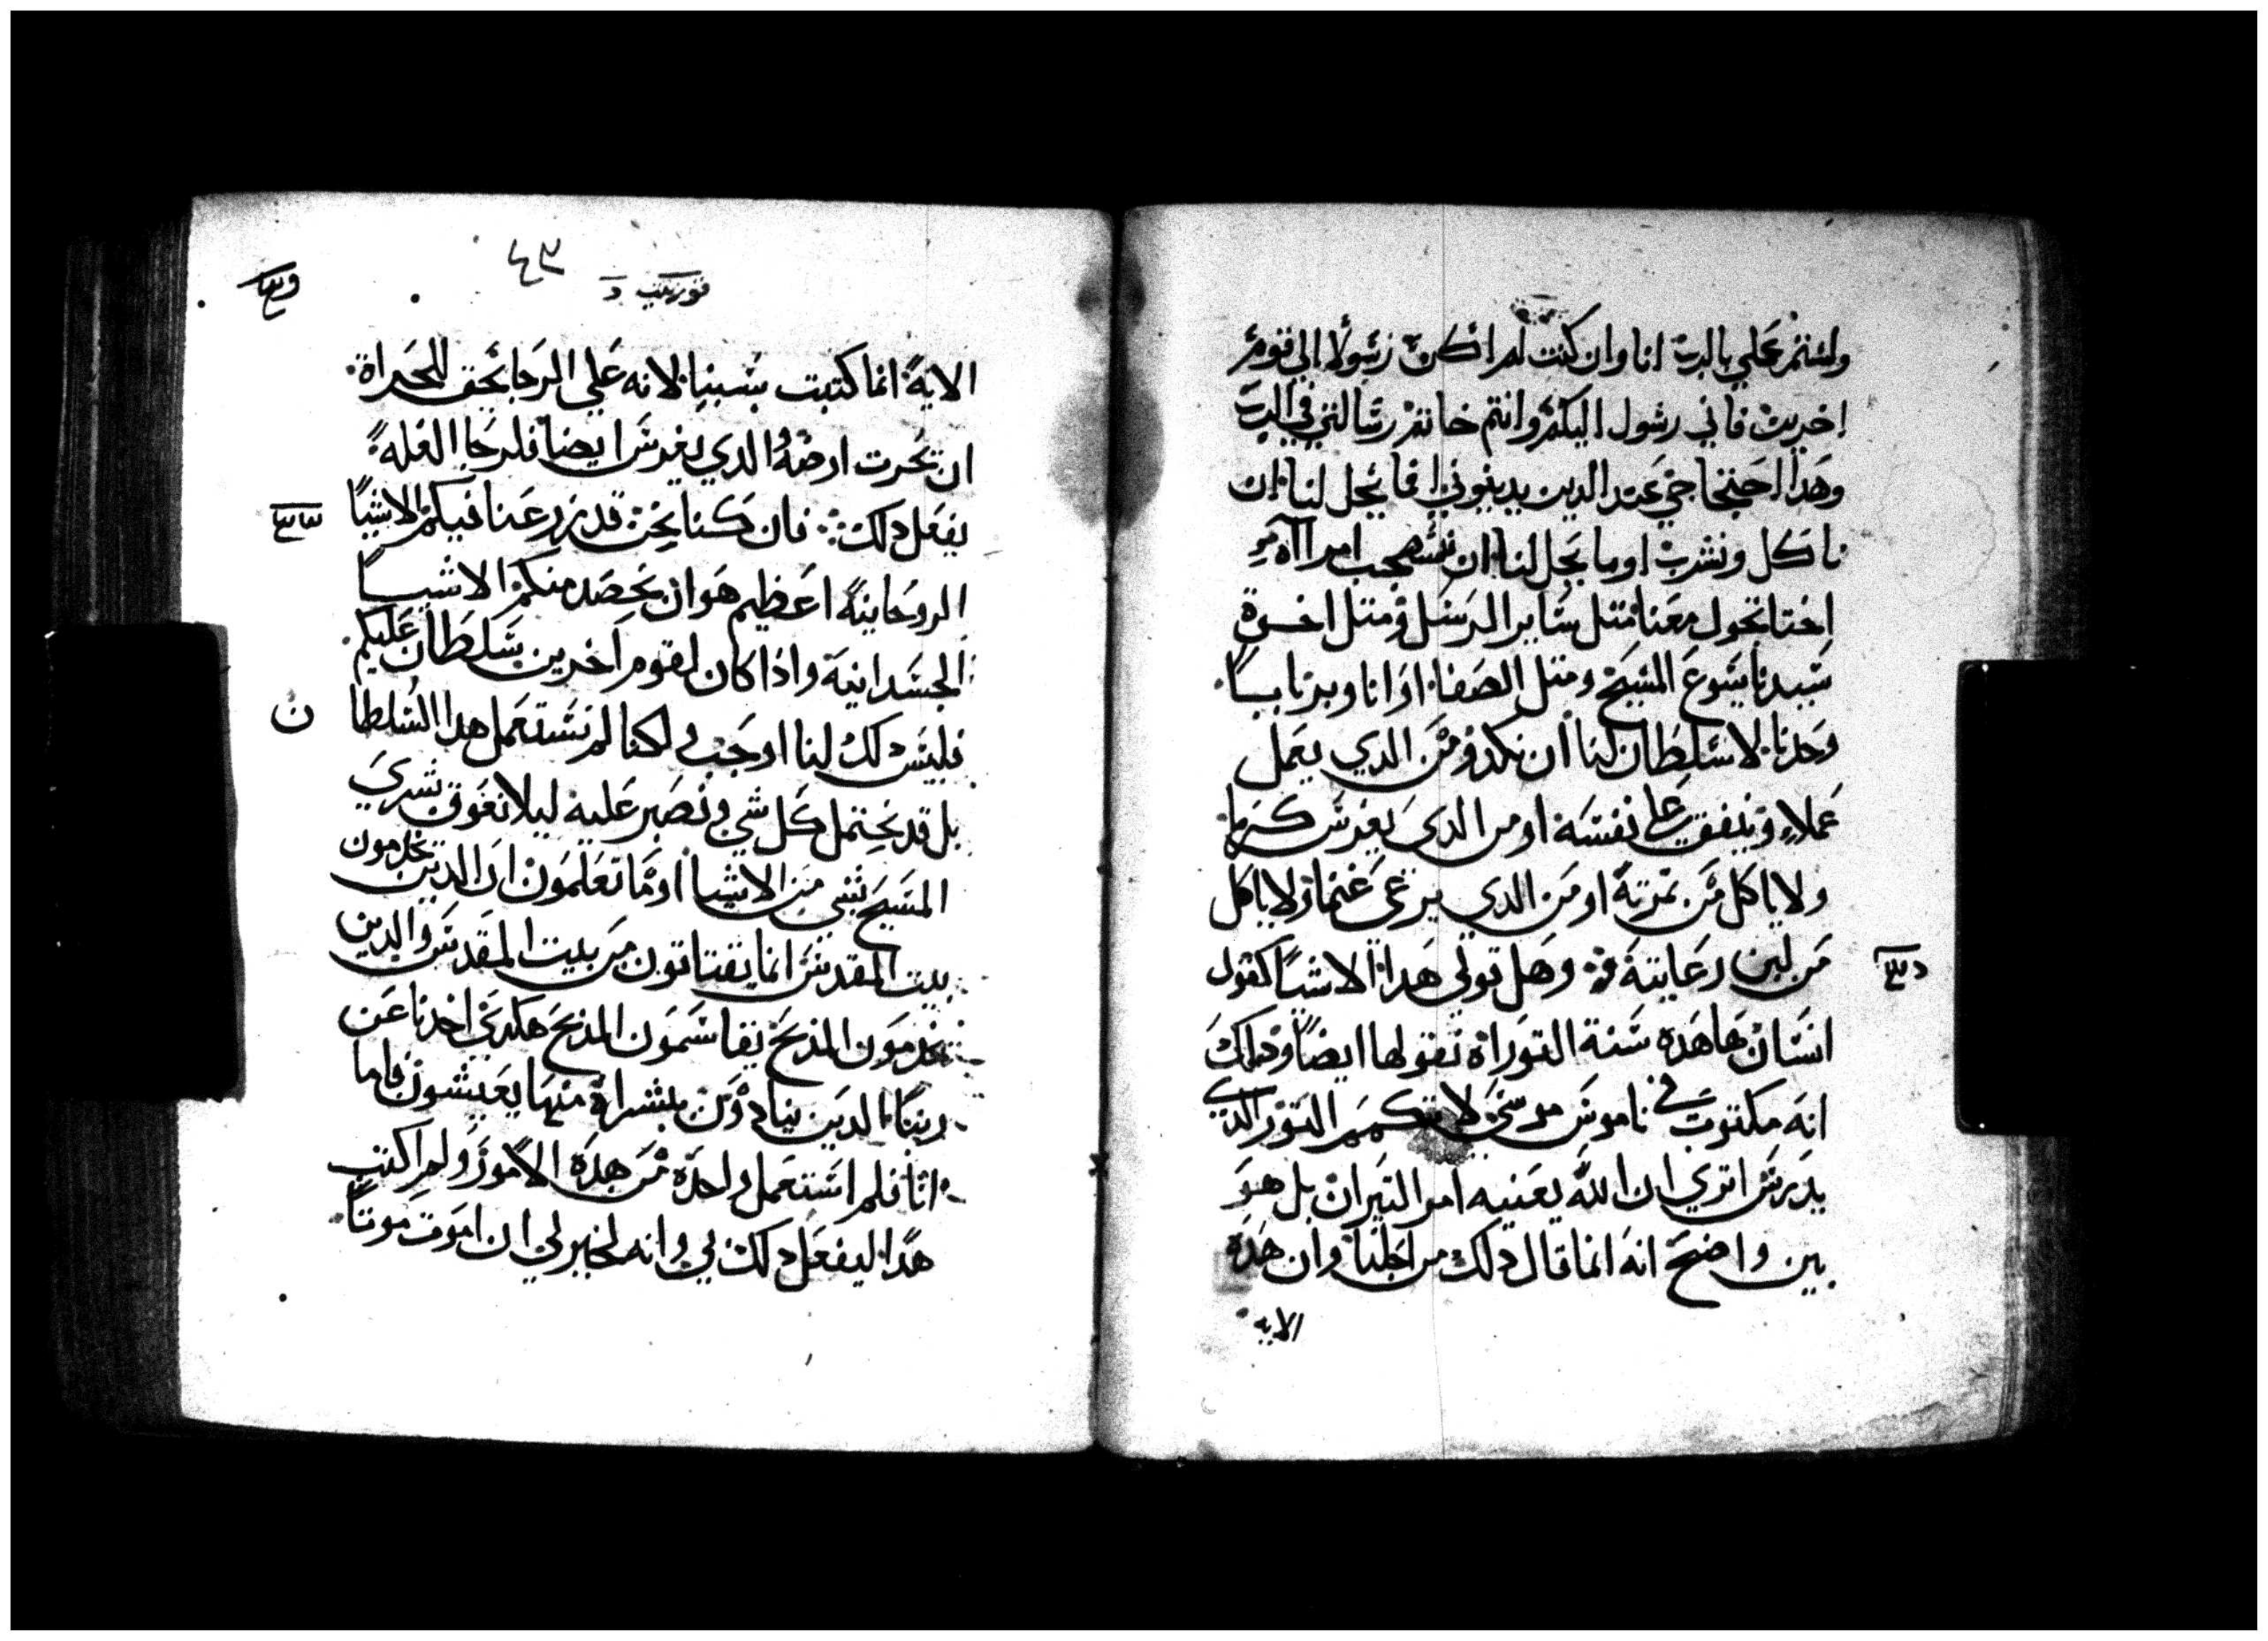 ولستم عملي بالرب انا وان كنت لم اكن رسولا الي قوم
اخرين فاني رسول اليكم وانتم خاتم رسالتي في الرب
وهدا احتجاجي عند الدين يدينوني اما يحل لنا ان
ناكل ونشرب اوما يحل لنا ان نستصحب امراه
اختا تجول معنا متل ساير الرسل ومتل اخوة
سيدنا يسوع المسيح ومتل الصفا او انا وبرنابا
وحدنا لا سلطان لنا ان نكد ومن الدي يعمل
عملا وينفق علي نفسه او من الدي يغرس كرما
ولا ياكل من تمرته او من الدي يرعي غنما ولا ياكل
من لبن رعايته وهل قولي هدا الاشيا كقول
انسان ها هده سنة التوراة تقولها ايضا ودلك
انه مكتوب في ناموس موسي لا تكمم التور الدي
يدرس اتري ان الله يعنيه امر التيران بل هو
بين واضح انه انما قال دلك من اجلنا وان هده
الايه
د
٤٣
الاية انما كتبت بسببنا لانه علي الرجا يحق للحراة
ان يحرت ارضه الدي يغرس ايضا فلرجا الغلة
يفعل دلك فان كنا نحن قد زرعنا فيكم الاشيا
الروحانية اعظيم هو ان نحصد منكم الاشيا
الجسدانية وادا كان لقوم اخرين سلطان عليكم
فليس دلك لنا اوجب ولكنا لم نستعمل هدا السلطا
ن
بل قد نحتمل كل شي ونصبر عليه ليلا نعوق بشري
المسيح بشي من الاشيا اوما تعلمون ان الدين يخدمون
بيت المقدس انما يقتاتون من بيت المقدس والدين
يخدمون المدبح يقاسمون المدبح هكدي احدنا عن
ربنا الدين ينادون ببشراه منها يعيشون فاما
انا فلم استعمل واحده من هده الامور ولم اكتب
هدا ليفعل دلك بي وانه لخير لي ان اموت موتا